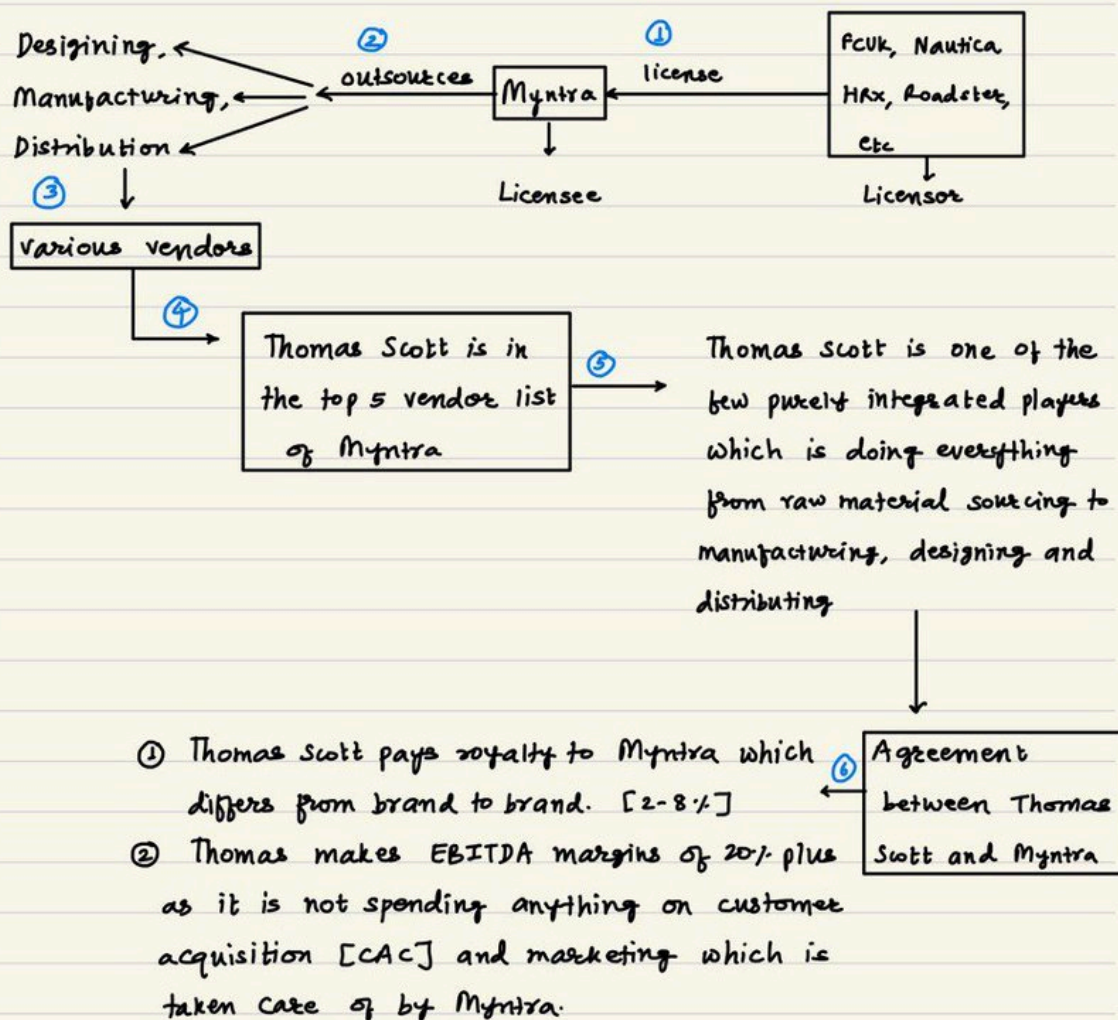 Desigining,
② ①
outsources
license
FCUK, Nautica
Manufacturing,
Myntra
HRx, Roadster,
Distribution
etc
③
Licensee
Licensor
various vendors
④
Thomas Scott is in
the top 5 vendor list
of Myntra
⑤
Thomas Scott is one of the
few purely integrated players
which is doing everything
from raw material sourcing to
manufacturing, designing and
distributing
Agreement
between Thomas
Scott and Myntra
⑥
① Thomas Scott pays royalty to Myntra which
differs from brand to brand. [2-8%]
② Thomas makes EBITDA margins of 20% plus
as it is not spending anything on customer
acquisition [CAC] and marketing which is
taken care of by Myntra.